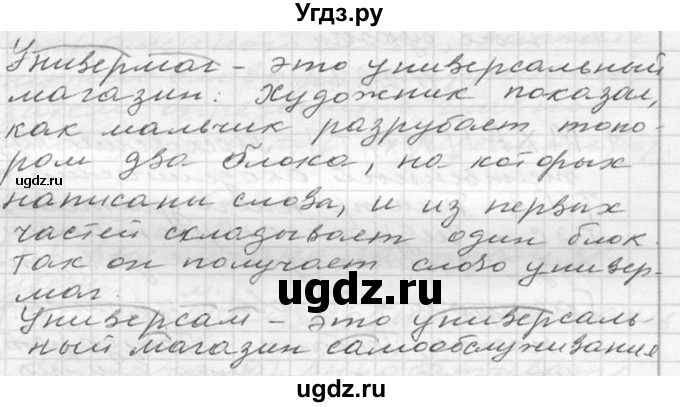 Угдз.ру
Универмаг - это универсальный
магазин. Художник показал,
как мальчик разрубает топо-
ром два блока, на которых
ugdz.ru
написаны слова, и из первых
частей складывает один блок.
так он получает слово универ-
ugdz.ru
маг.
ugdz.ru
Универсам - это универсаль-
ный магазин самообслуживания
ugdz.ru
ugdz.ru